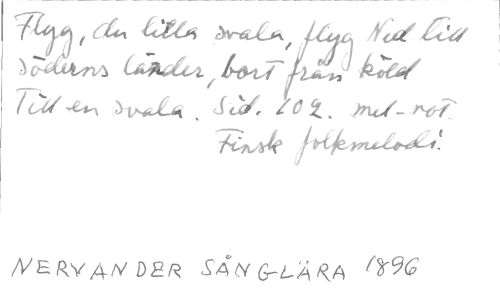 Flyg, du lilla svala, flyg Ned till
söderns länder, bort från köld
Till en svala. Sid. 102. mel-not.
Finsk folkmelodi.
NERVANDER SÅNGLÄRA 1896